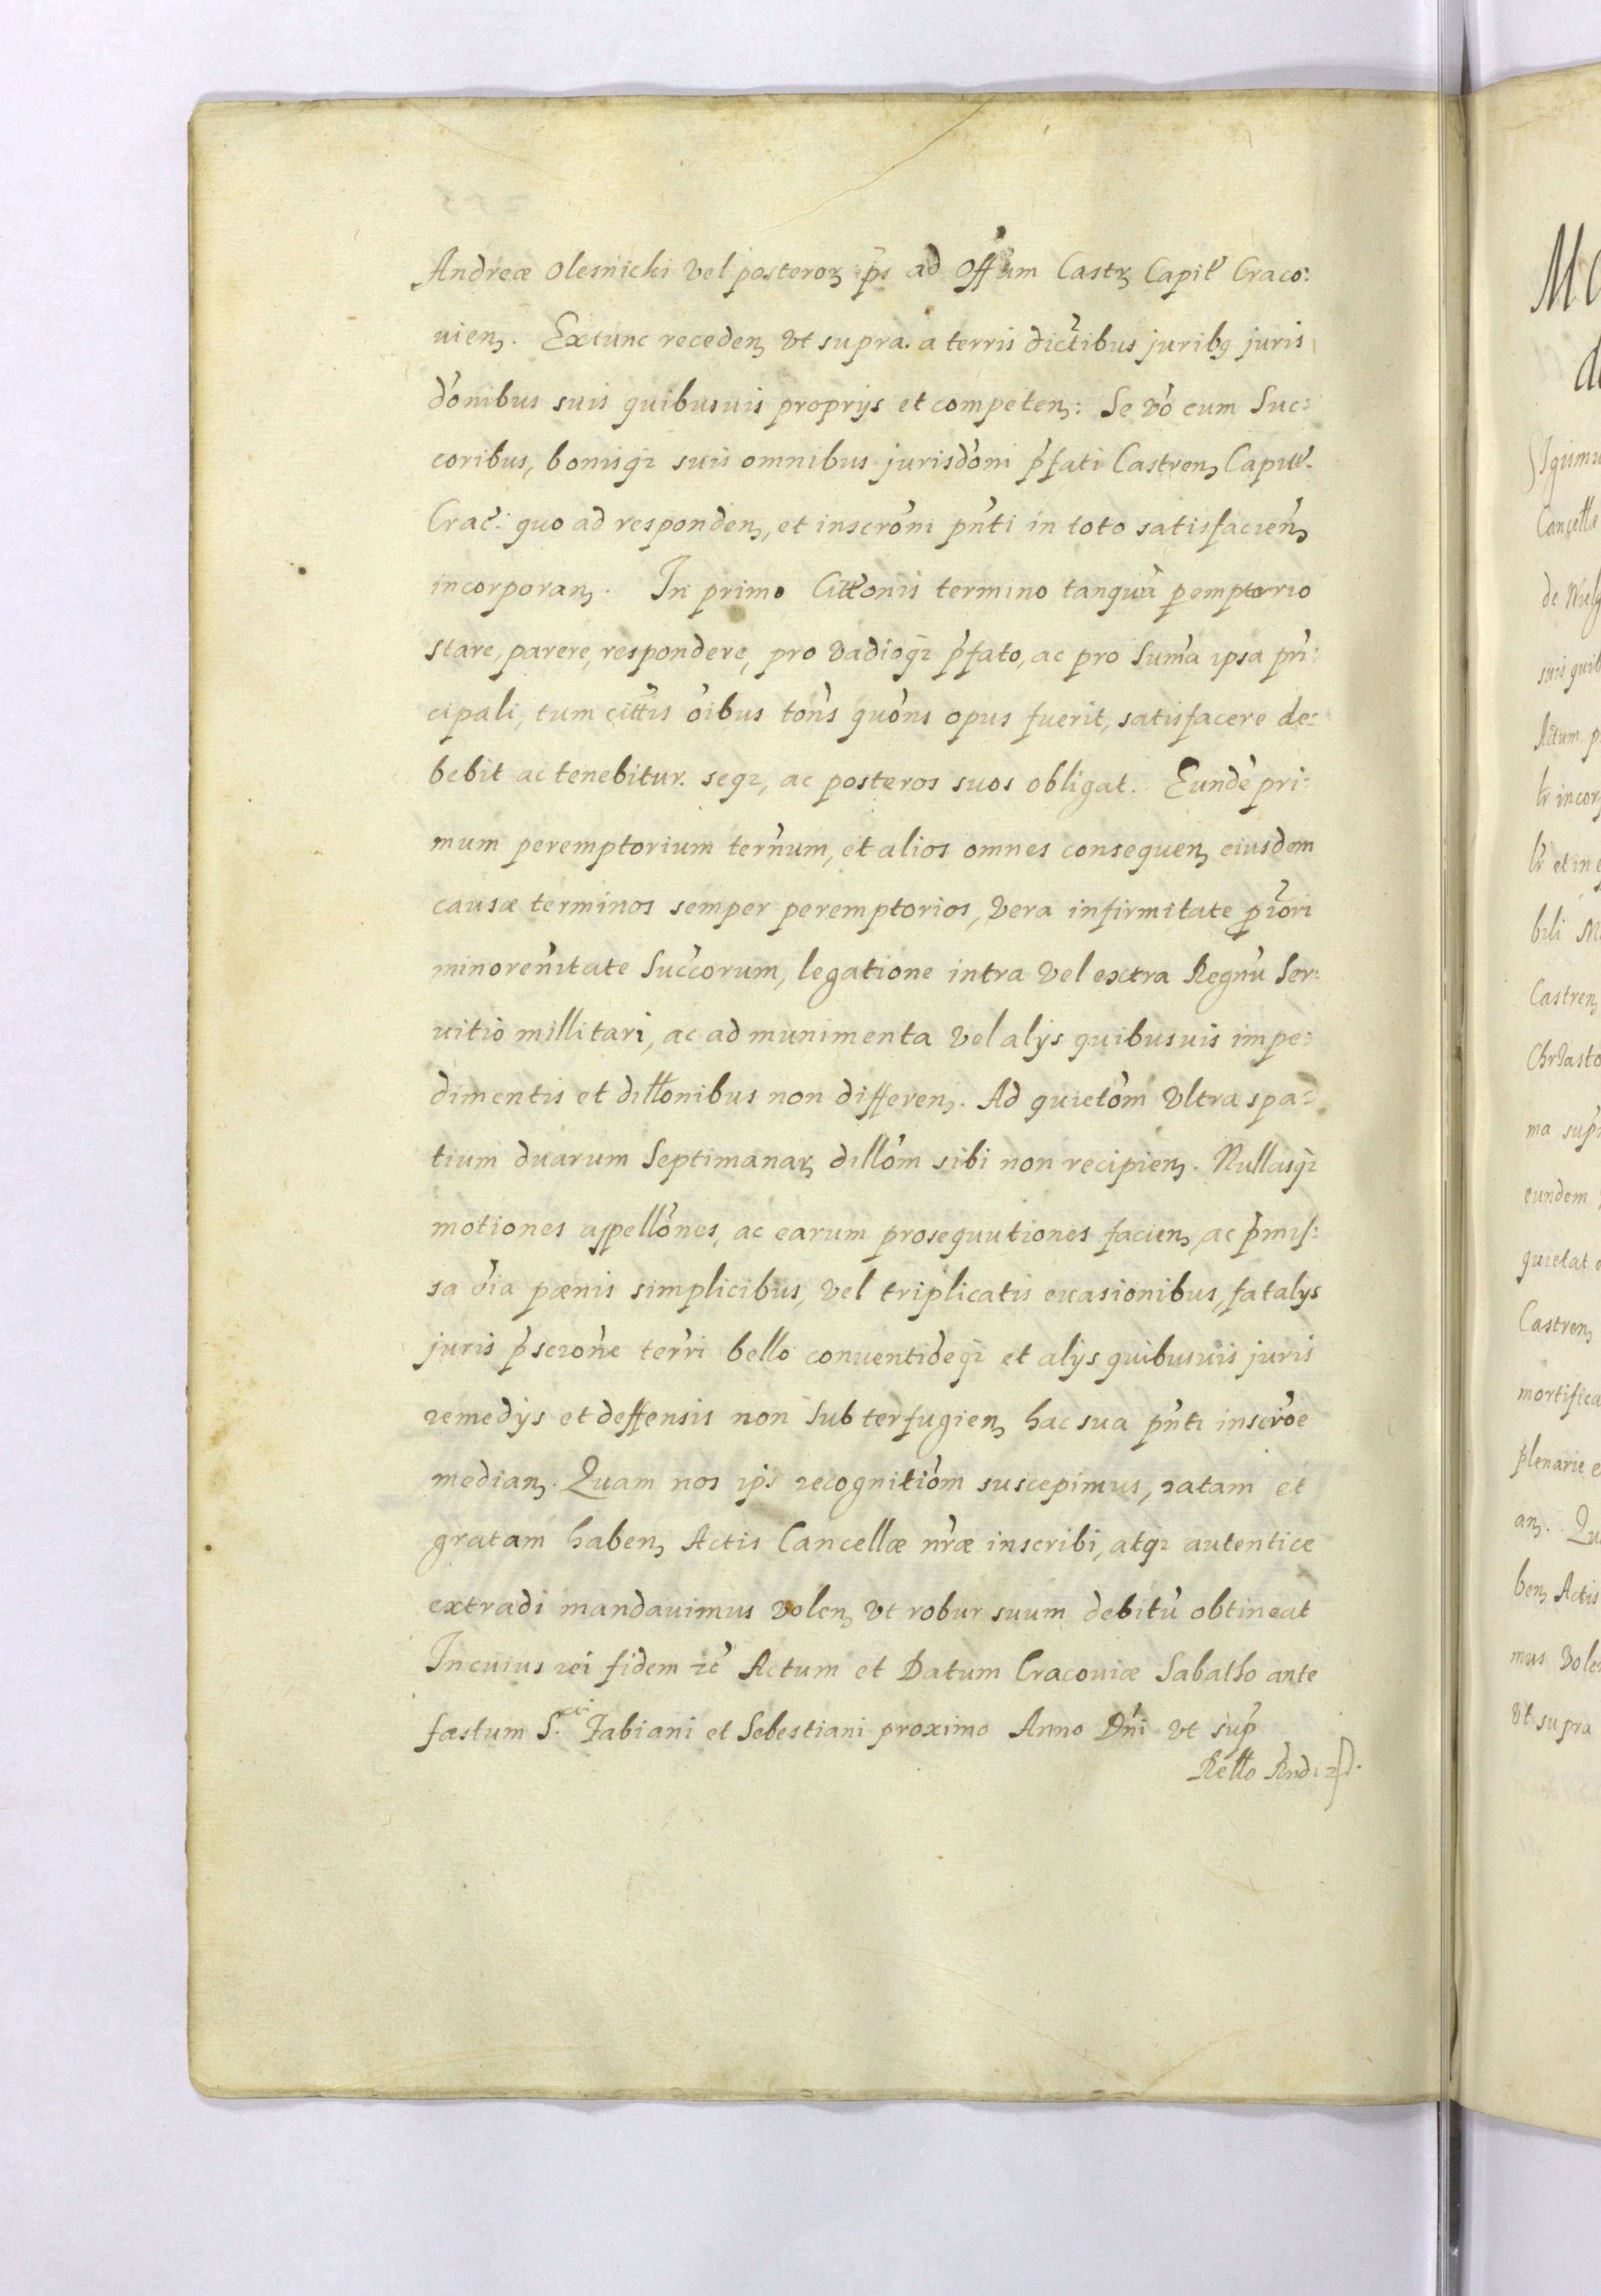 Andreæ Olesnicki vel posteroꝝ ip̃s ad Off̃um Castꝝ Capił Craco:
uienꝫ. Extunc recedenꝫ vt supra. a terris dict̃ibus juribꝯ juris
dõnibus suis quibusuis proprijs et competenꝫ: Se võ cum Suc:
coribus, bonisqꝫ suis omnibus jurisdõni p̃fati Castrenꝫ Capitł.
Crac̃. quo ad respondenꝫ, et inscrõni pñti in toto satisfacienꝫ
incorporanꝫ. In primo Citt̃onis termino tanquã pemptorio
stare, parere, respondere, pro vadioqꝫ p̃fato, ac pro sum̃a ipsa prĩ:
cipali, tum citt̃is õibus tõns quõns opus fuerit, satisfacere de:
bebit ac tenebitur. seqꝫ, ac posteros suos obligat. Eundẽ pri:
mum peremptorium terñum, et alios omnes consequenꝫ eiusdem
causæ terminos semper peremptorios, vera infirmitate
minoreñitate Suc̃corum, legatione intra vel extra Regnũ Ser:
uitio millitari, ac ad munimenta vel alijs quibusuis impe:
dimentis et dill̃onibus non differenꝫ. Ad quietõm vltra spa:
tium duarum Septimanaꝝ dillõm sibi non recipienꝫ. Nullasqꝫ
motiones appellõnes, ac earum prosequutiones facienꝫ, ac p̃mis:
sa õia pænis simplicibus, vel triplicatis euasionibus, fatalijs
juris p̃scrõne terr̃i bello conuentideqꝫ et alijs quibusuis juris
remedijs et deffensis non subterfugienꝫ hac sua pñti inscrõe
medianꝫ. Quam nos ip̃s recognitiõm suscepimus, ratam et
gratam habenꝫ Actis Cancellæ nr̃æ inscribi, atqꝫ autentice
extradi mandauimus volenꝫ vt robur suum debitũ obtineat
In cuius rei fidem ꝛc̃ Actum et Datum Cracouiæ Sabatho ante
fæstum S.cti Fabiani et Sebestiani proximo Anno Dñi vt sup̃
Rell̃o